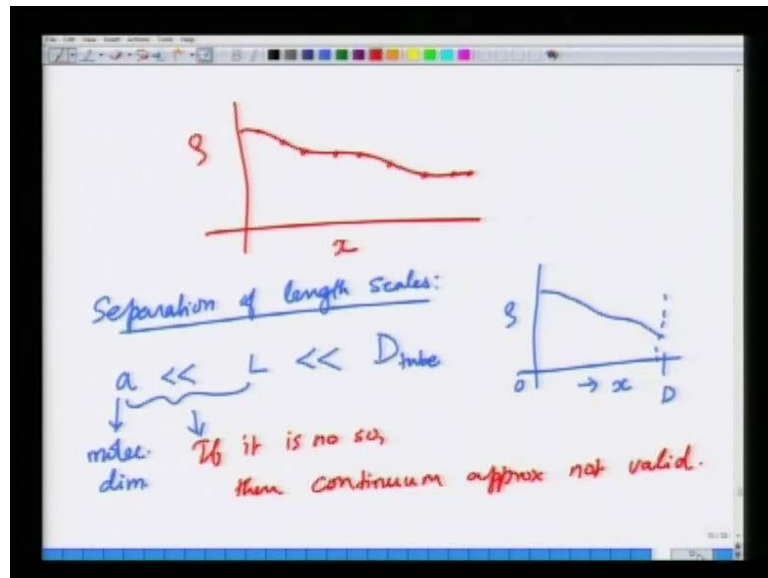 ρ
x
Separation of length scales:
a << L << D tube
molec. dim
If it is no so,
then continuum approx not valid.
ρ
0 → x D